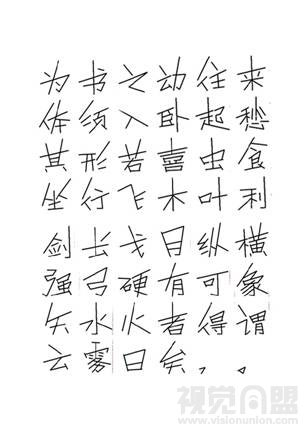 为书之动往来
体须入卧起愁
其形若喜虫食
坐行飞木叶利
剑长戈日纵横
强弓硬有可象
矢水火者得谓
云雾日矣，。
视觉同盟
www.visionunion.com